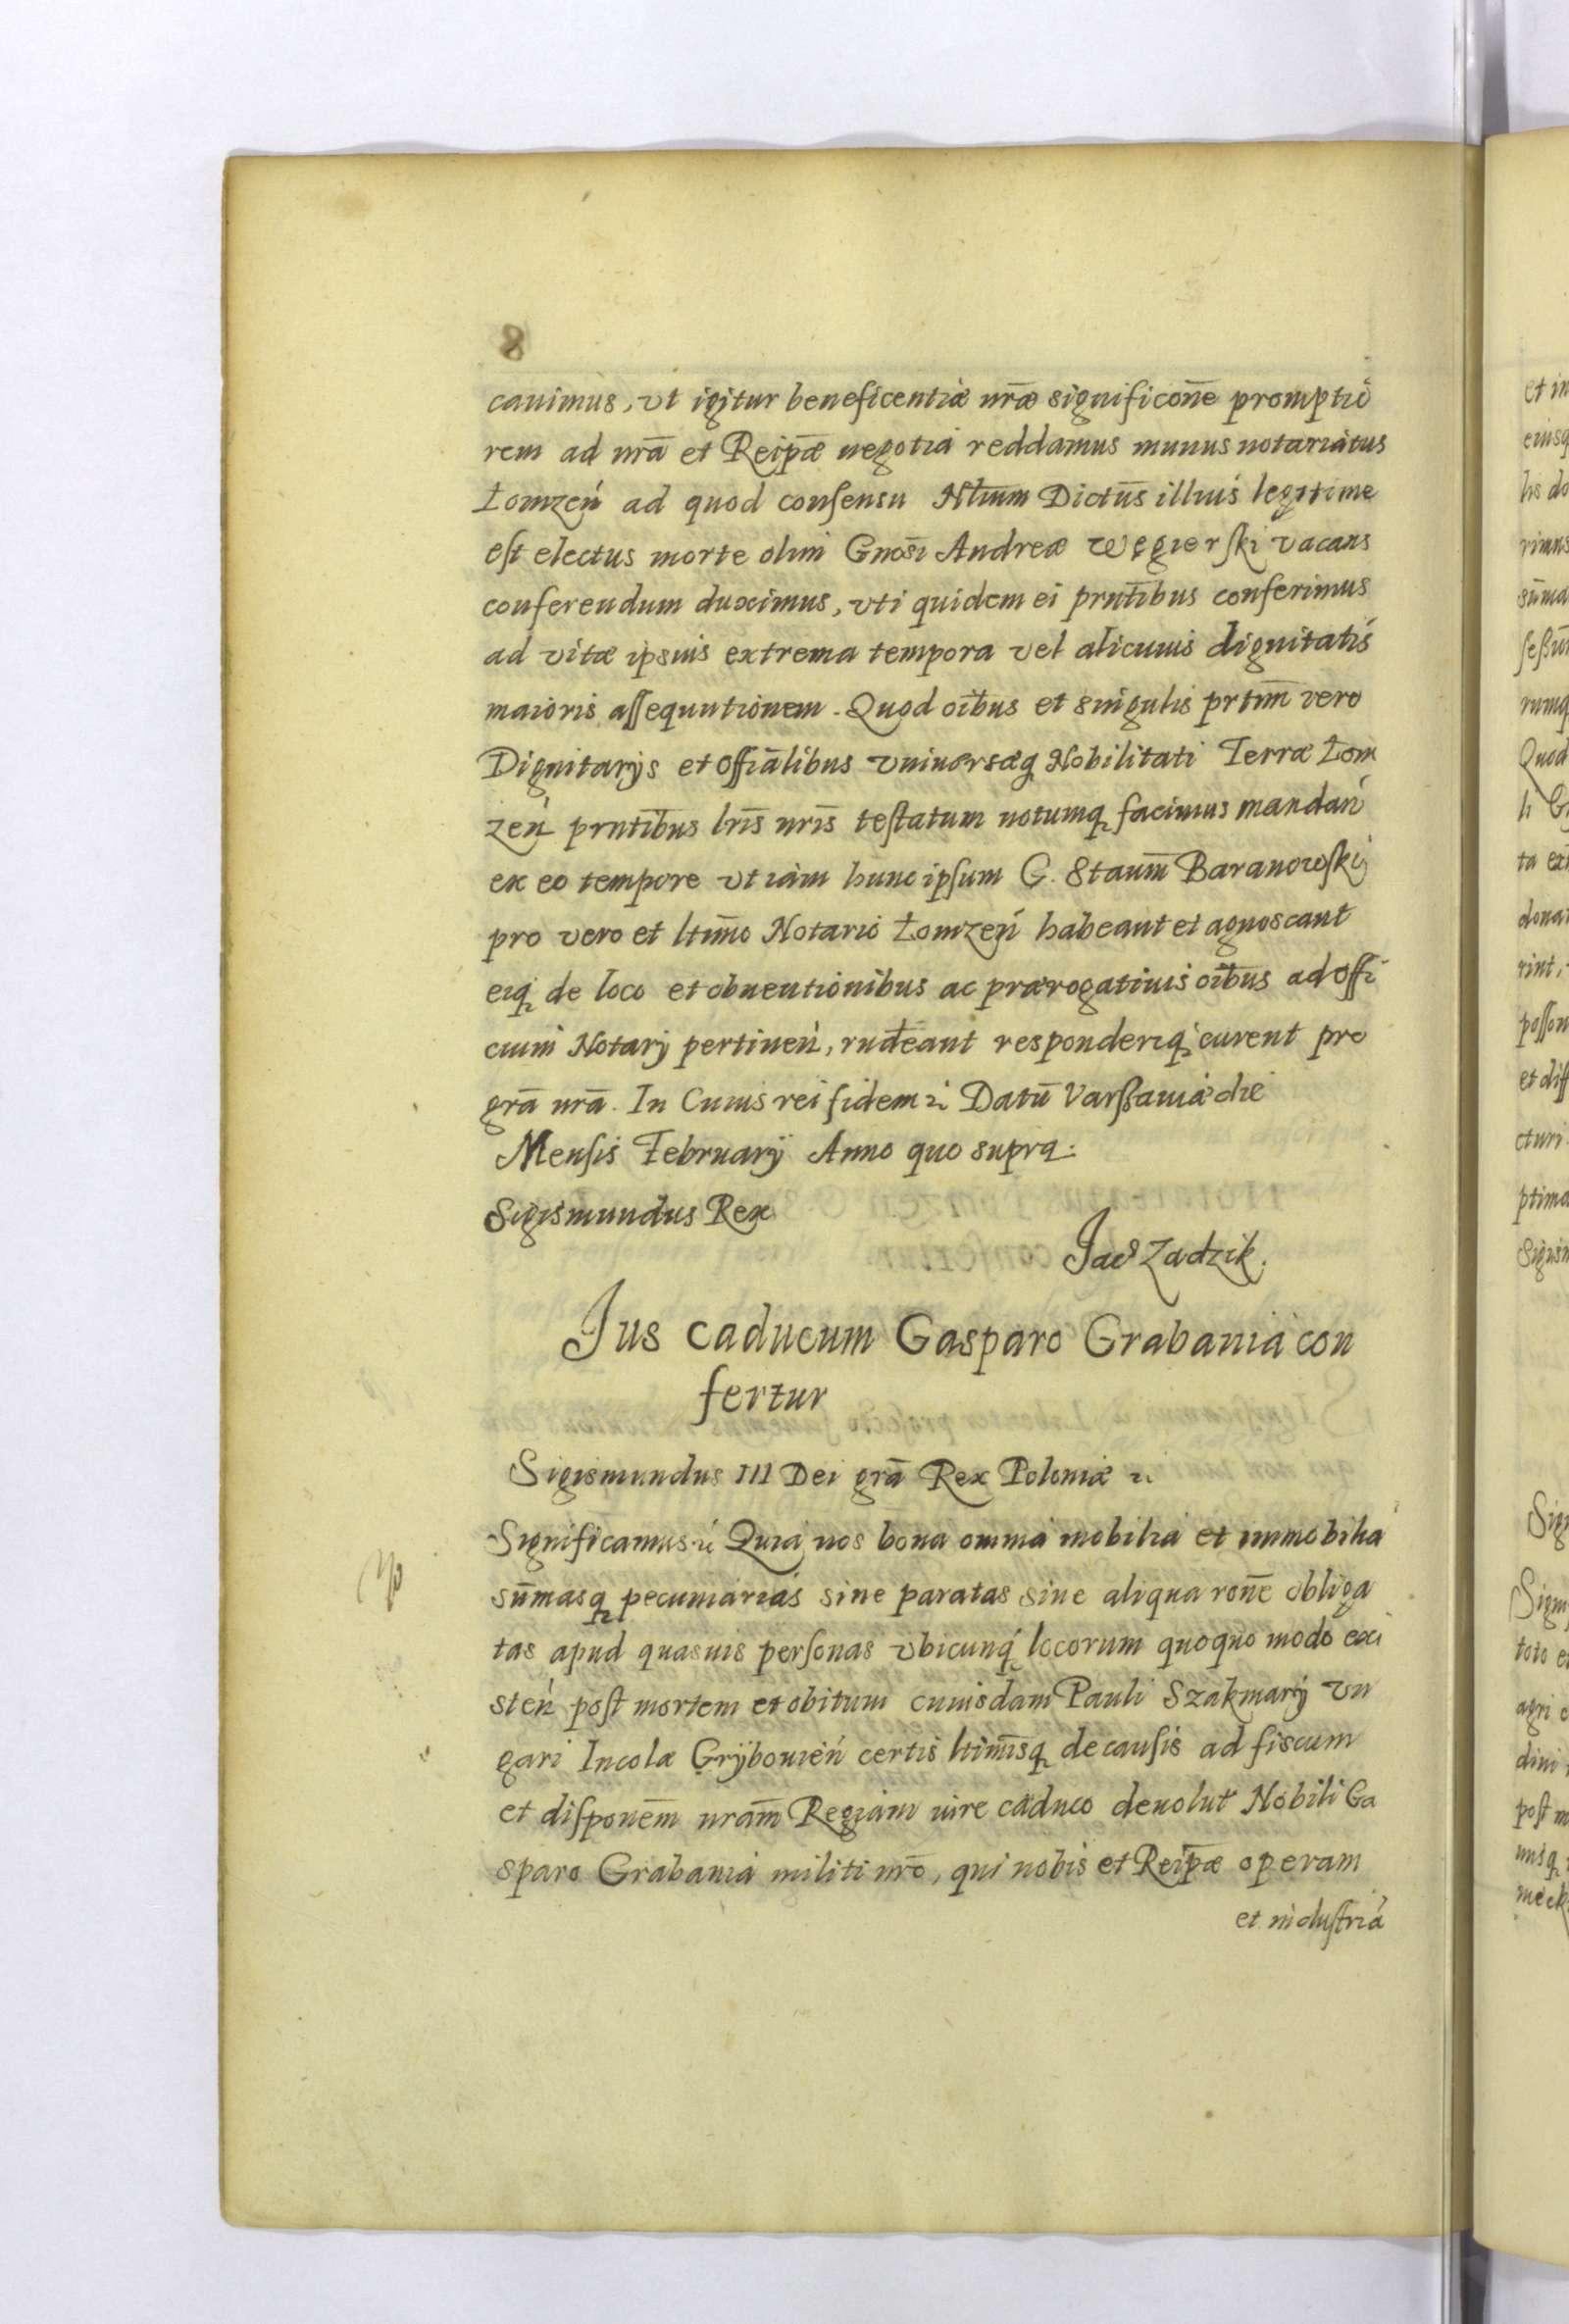 8
cauimus, vt igitur beneficentiæ nr̄æ significon̄e promptio
rem ad nrā et Reip̄æ negotia reddamus munus notariatus
Łomzeń ad quod consensu Nłium Dictūs illius legitime
est electus morte olim Gnosī Andreæ Węgierski vacans
conferendum duximus, vti quidem ei prnt̄ibus conferimus
ad vitæ ipsius extrema tempora vel alicuius dignitatis
maioris assequutionem. Quod oībus et singulis prtim̄ vero
Dignitarijs et offiālibus vniuersæq Nobilitati Terræ Łom
zeń prntībus lrīs nrīs testatum notumq facimus mandań
ex eo tempore vt iam hunc ipsum G. Staum̄ Baranowskij
pro vero et ltim̄o Notario Łomzeń habeant et agnoscant
eiq de loco et obuentionibus ac prærogatiuis oībus ad offi
cium Notarij pertineń, rńdeant responderiq curent pro
grā nrā. In Cuius rei fidem ꝛ Datū Varssauiæ die
Mensis Februarij Anno quo supra.
Sigismundus Rex
Jac Zadzik.
Jus caducum Gasparo Grabania con
fertur
Sigismundus III Dei grā Rex Poloniæ ꝛ
Significamus ꝛ Quia nos bona omnia mobilia et immobilia
sum̄asq pecuniarias siue paratas siue aliqua ron̄e obliga
tas apud quasuis personas vbicunq locorum quoquo modo exi
steń post mortem et obitum cuiusdam Pauli Szakmarij Vn
gari Incolæ Grybouień certis ltim̄isq de causis ad fiscum
et disponem̄ nram̄ Regiam iure caduco deuolut Nobili Ga
sparo Grabania militi nrō, qui nobis et Reip̄æ operam
et industriā